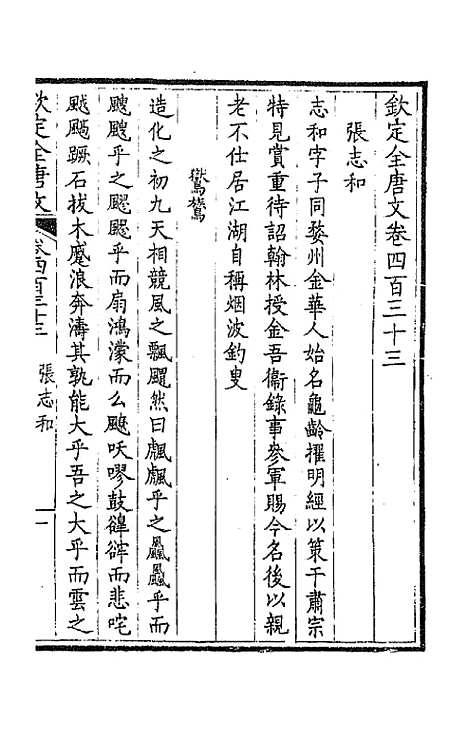 欽定全唐文卷四百三十三
張志和
志和字子同婺州金華人始名龜齡擢明經以策干肅宗
特見賞重待詔翰林授金吾衞錄事參軍賜今名後以親
老不仕居江湖自稱烟波釣叟
鸑鷟
造化之初九天相競風之飄飀然曰飍飍乎之飝飝乎而
飂飂乎之颸颸乎而扇鴻濛而么飈呋嘐鼓鍠鎁而悲咤
颰飈蹶石拔木蹙浪奔濤其孰能大乎吾之大乎而雲之
欽定全唐文
卷四百三十三
張志和
一